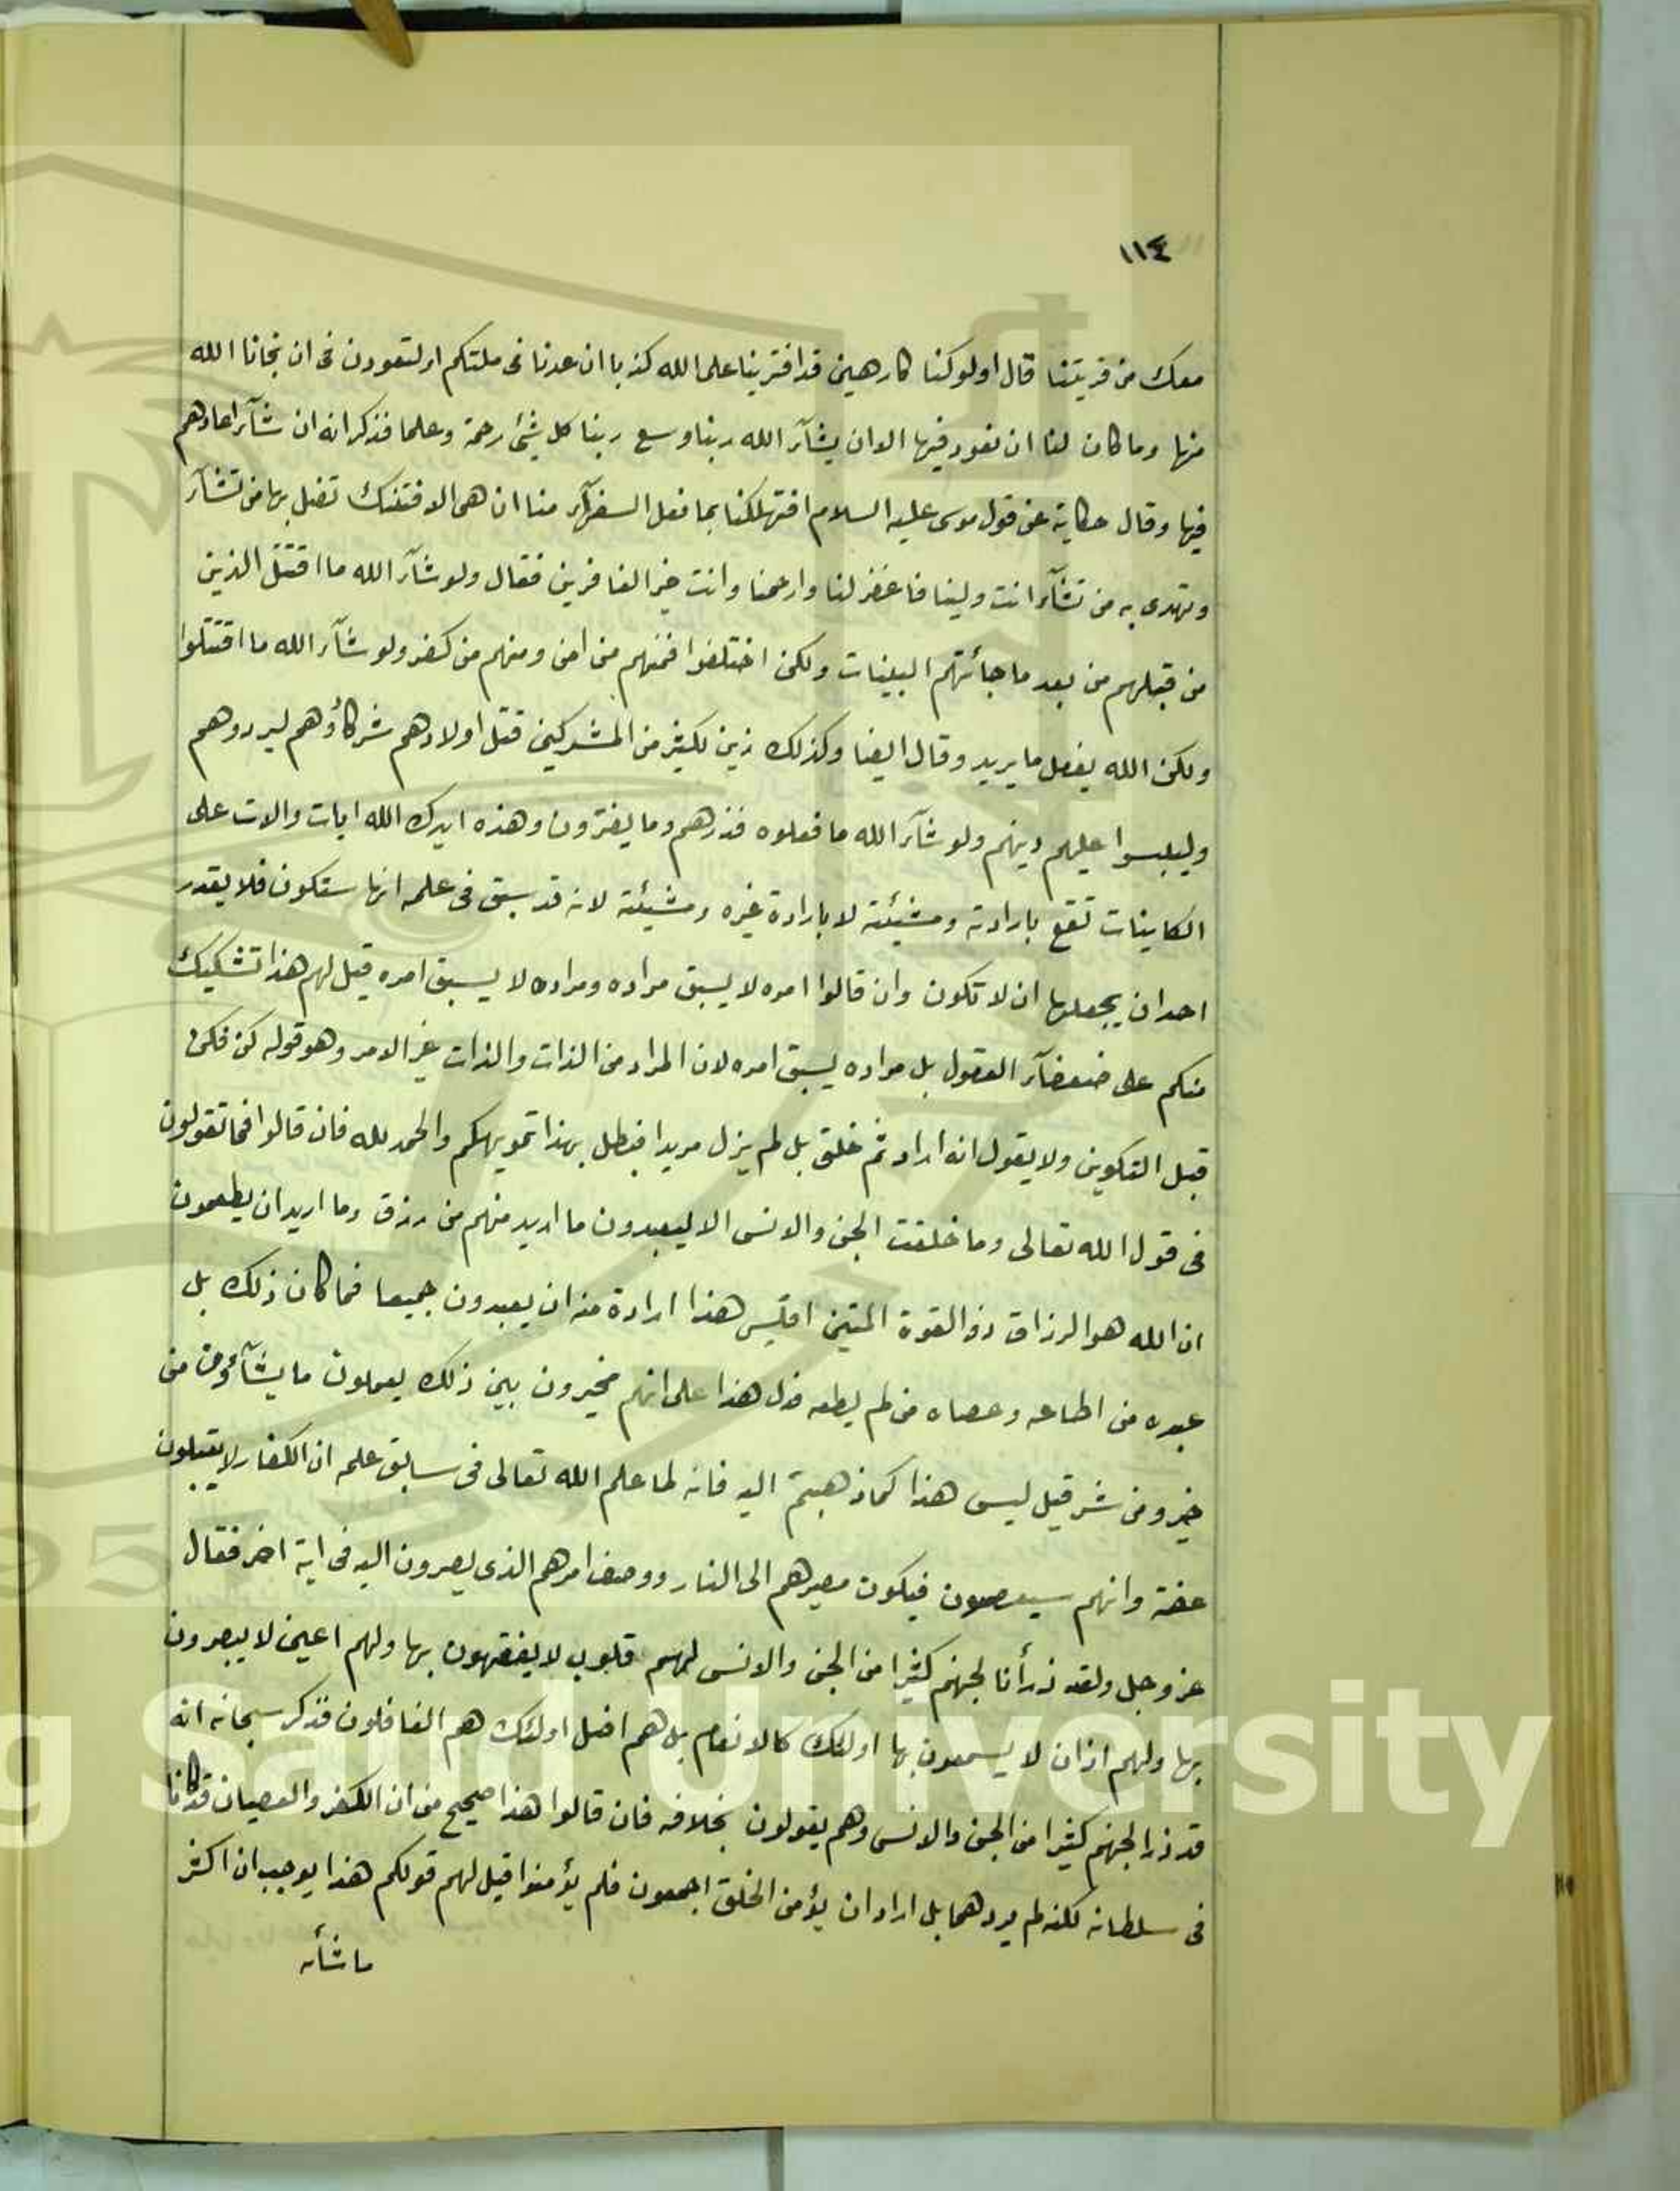 ١١٤
معك من قريتنا قال اولو كنا كارهين قد افترينا على الله كذبا ان عدنا فى ملتكم او لتعودن فى ان نجانا الله
منها وما كان لنا ان نعود فيها الا ان يشآء الله ربنا وسع ربنا كل شئ رحمة وعلما فذكر انه ان شآء اعادهم
فيها وقال حكاية عن قول موسى عليه السلام افتهلكنا بما فعل السفهآء منا ان هى الا فتنتك تضل بها من تشآء
وتهدى به من تشآء انت ولينا فاغفر لنا وارحمنا وانت خير الغافرين فقال ولو شآء الله ما اقتتل الذين
من قبلهم من بعد ما جائتهم البينات ولكن اختلفوا فمنهم من امن ومنهم من كفر ولو شآء الله ما اقتتلوا
ولكن الله يفعل ما يريد وقال ايضا وكذلك زين لكثير من المشركين قتل اولادهم شركاؤهم ليردوهم
وليلبسوا عليهم دينهم ولو شآء الله ما فعلوه فذرهم وما يفترون وهذه ايدك الله ايات دالات على
الكاينات تقع بارادته ومشيئته لا بارادة غيره ومشيئته لانه قد سبق فى علمه انها ستكون فلا يقدر
احد ان يجعلها ان لا تكون وان قالوا امره لا يسبق مراده ومراده لا يسبق امره قيل لهم هذا تشكيك
منكم على ضعفآء العقول بل مراده يسبق امره لان المراد من الذات والذات غير الامر وهو قوله كن فكن
قبل التكوين ولا يقول انه اراد ثم خلق بل لم يزل مريدا فبطل بهذا تمويهكم والحمد لله فان قالوا فما تقولون
فى قول الله تعالى وما خلقت الجن والانس الا ليعبدون ما اريد منهم من رزق وما اريد ان يطعمون
ان الله هو الرزاق ذو القوة المتين افليس هذا ارادة منه ان يعبدون جميعا فما كان ذلك بل
عبده من اطاعه وعصاه من لم يطعه فدل هذا على انهم مخيرون بين ذلك يعملون ما يشآؤن من
خير ومن شر قيل ليس هذا كما ذهبتم اليه فانه لما علم الله تعالى فى سابق علمه ان الكفار لا يقبلون
عنه وانهم سيعصون فيكون مصيرهم الى النار ووصف امرهم الذى يصيرون اليه فى اية اخر فقال
عز وجل ولقد ذرأنا لجهنم كثيرا من الجن والانس لهم قلوب لا يفقهون بها ولهم اعين لا يبصرون
بها ولهم اذان لا يسمعون بها اولئك كالانعام بل هم اضل اولئك هم الغافلون فذكر سبحانه انه
قد ذرا لجهنم كثيرا من الجن والانس وهم يقولون بخلافه فان قالوا هذا صحيح من ان الكفر والعصيان قد كانا
فى سلطانه لكنه لم يردهما بل اراد ان يؤمن الخلق اجمعون فلم يؤمنوا قيل لهم قولكم هذا يوجب ان اكثر
ما شأه
g Saud University